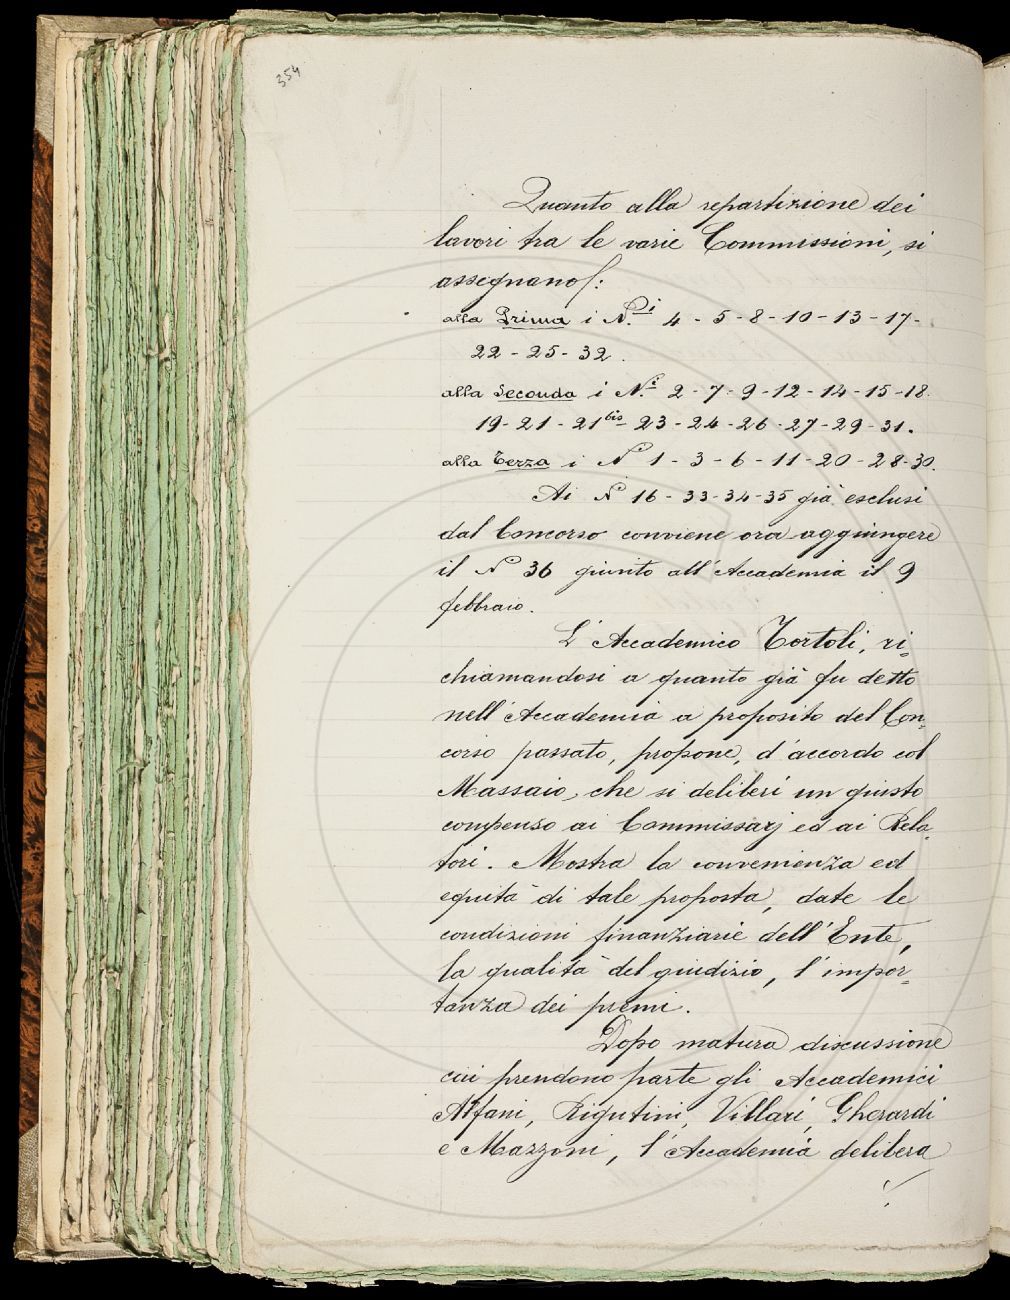 354
Quanto alla repartizione dei
lavori tra le varie Commissioni, si
assegnano:
alla Prima i N.ri 4 - 5 - 8 - 10 - 13 - 17 -
22 - 25 - 32.
alla Seconda i N.i 2 - 7 - 9 - 12 - 14 - 15 - 18.
19 - 21 - 21bis - 23 - 24 - 26 - 27 - 29 - 31.
alla Terza i No 1 - 3 - 6 - 11 - 20 - 28 - 30.
Ai No 16 - 33 - 34 - 35 già esclusi
dal Concorso conviene ora aggiungere
il No 36 giunto all'Accademia il 9
febbraio.
L'Accademico Tortoli, ri=
chiamandosi a quanto già fu detto
nell'Accademia a proposito del Con=
corso passato, propone, d'accordo col
Massaio, che si deliberi un giusto
compenso ai Commissarj ed ai Rela=
tori. Mostra la convenienza ed
equità di tale proposta, date le
condizioni finanziarie dell'Ente,
la qualità del giudizio, l'impor=
tanza dei premi.
Dopo matura discussione
cui prendono parte gli Accademici
Alfani, Rigutini, Villari, Gherardi
e Mazzoni, l'Accademia delibera